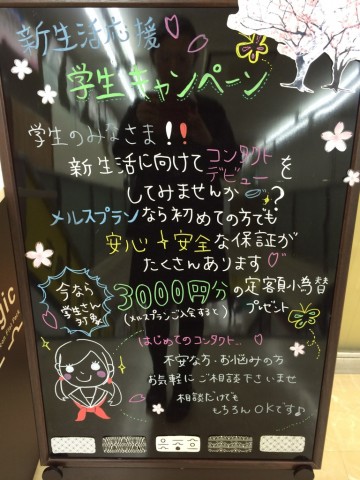 新生活応援
学生キャンペーン
学生のみなさま！！
新生活に向けてコンタクトデビューを
してみませんか？
メルスプランなら初めての方でも
安心 安全な保証が
たくさんあります
今なら
学生さん
対象
3000円分の定額小為替
プレゼント
(メルスプランご入会すると)
はじめてのコンタクト…
不安な方・お悩みの方
お気軽にご相談下さいませ
相談だけでも
もちろんOKです♪
gic